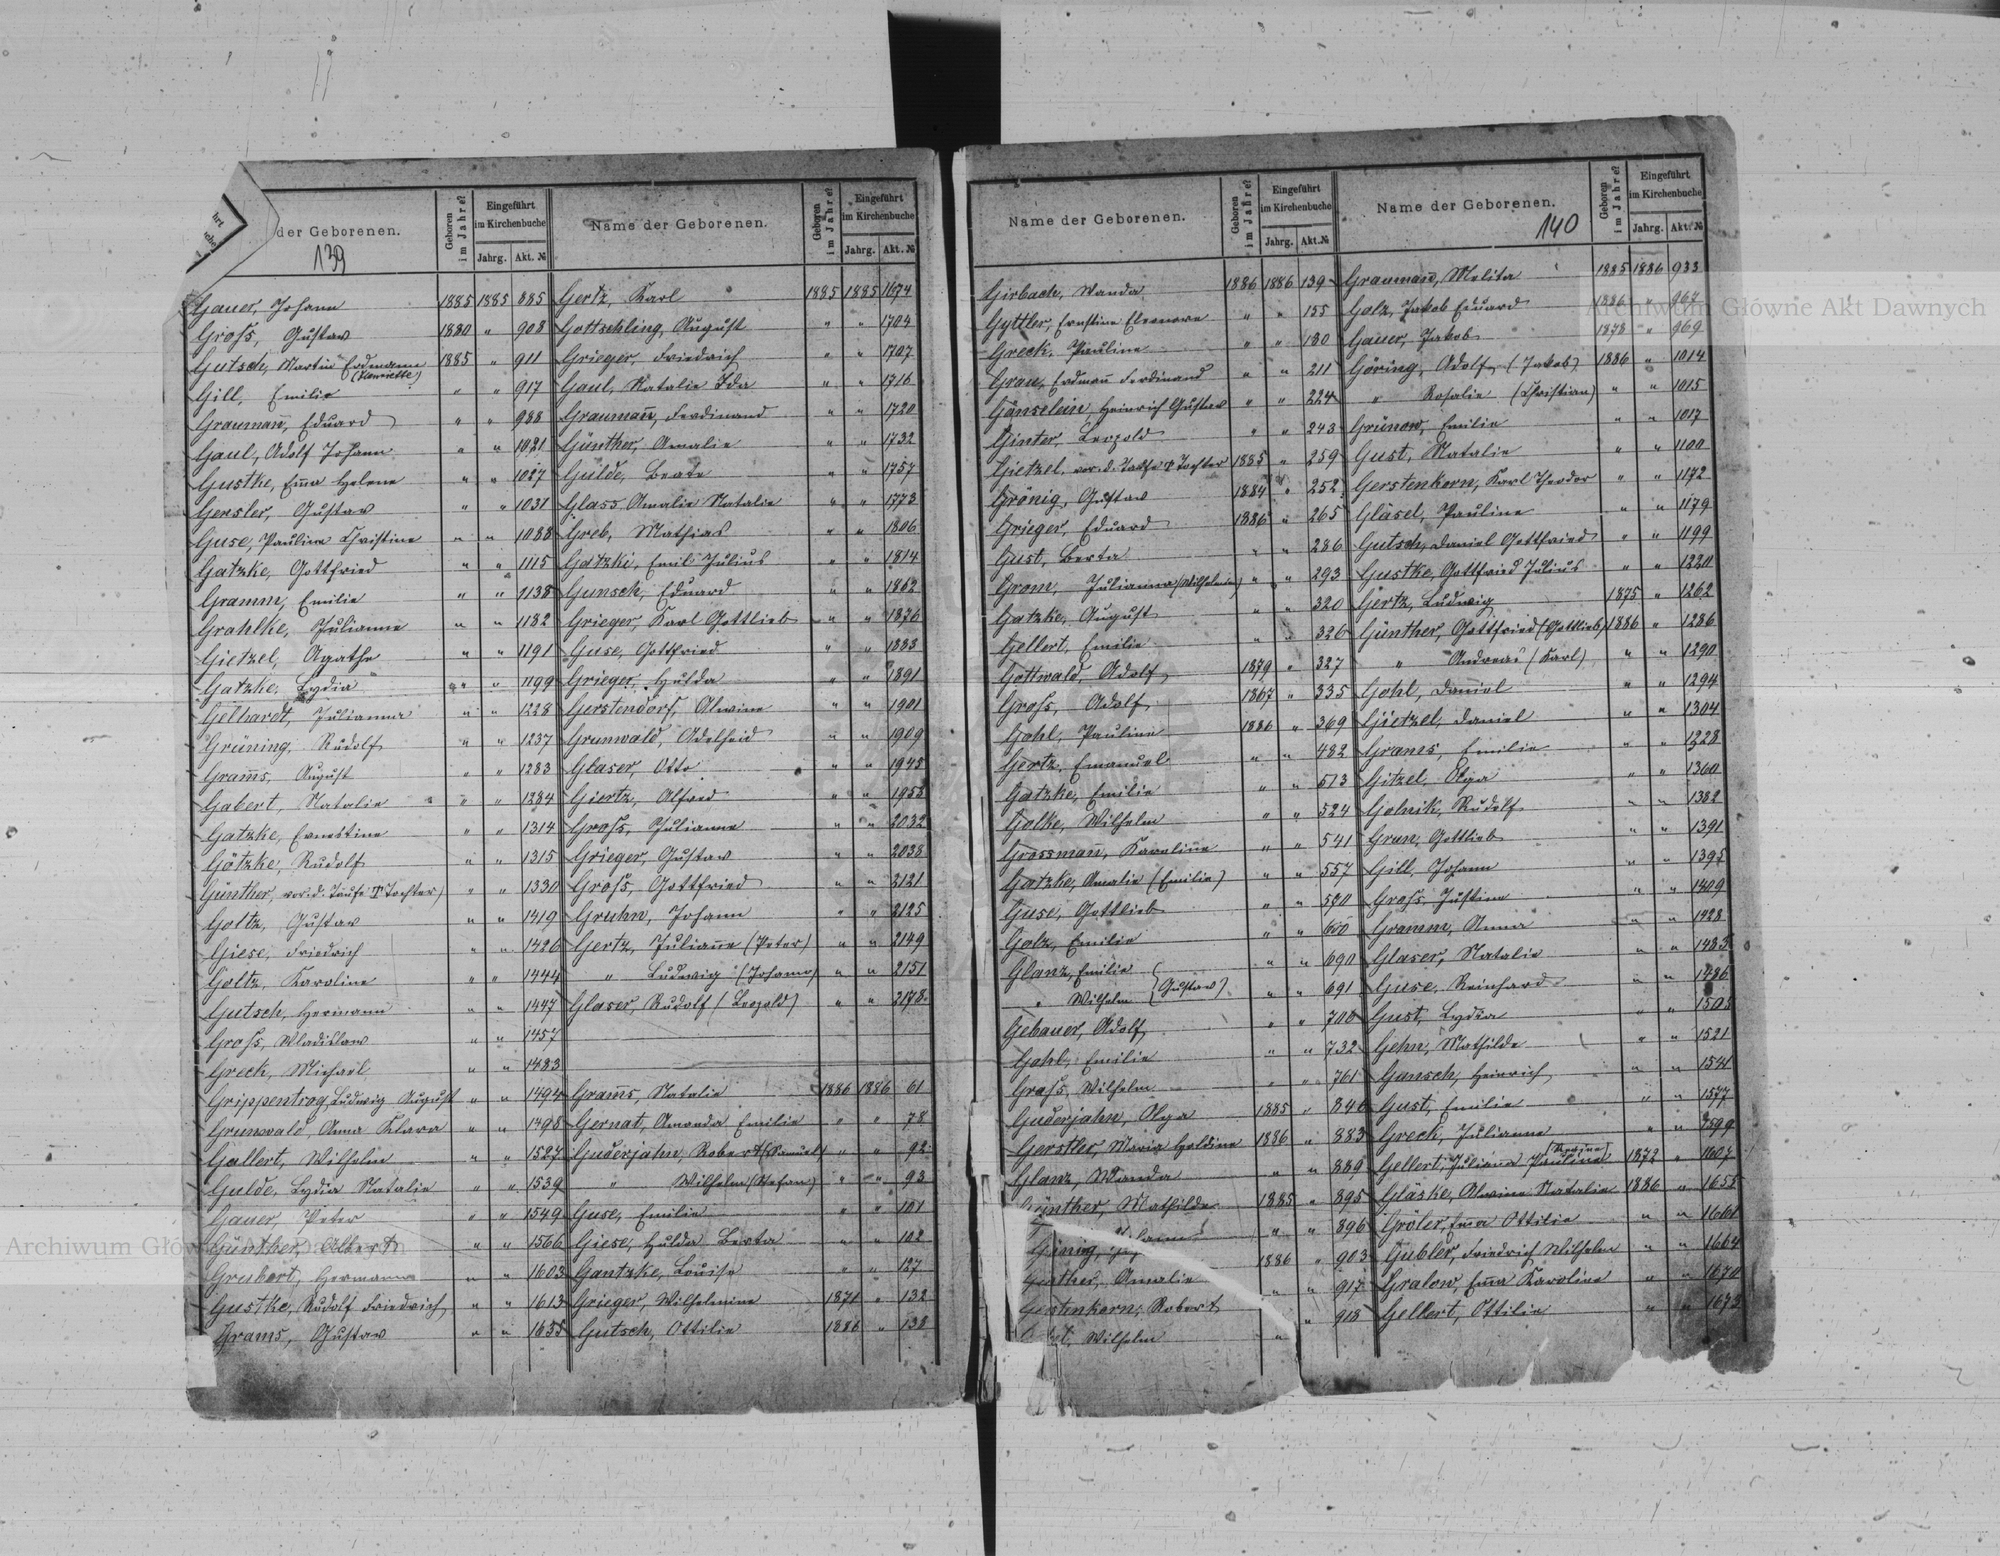 der Geborenen.
Geboren im Jahre?
Eingeführt im Kirchenbuche
Jahrg. Akt. №
139
Gauer, Johann 1885 1885 885
Gross, Gustav 1880 " 908
Gutsch, Martin Erdmann (Henriette) 1885 " 911
Gill, Emilie " " 917
Graumañ, Eduard " " 988
Gaul, Adolf Johann " " 1021
Gustke, Em̃a Helene " " 1027
Gersler, Gustav " " 1031
Guse, Pauline Christine " " 1088
Gatzke, Gottfried " " 1115
Gramm, Emilie " " 1138
Grahlke, Julianne " " 1182
Gietzel, Agathe " " 1191
Gatzke, Lydia " " 1199
Gelhardt, Julianna " " 1228
Grüning, Rudolf " " 1237
Gram̃s, August " " 1283
Gabert, Natalie " " 1284
Gatzke, Ernestine " " 1314
Götzke, Rudolf " " 1315
Günther, vor d. Taufe † Tochter " " 1330
Goltz, Gustav " " 1419
Giese, Friedrich " " 1426
Goltz, Karoline " " 1444
Gutsch, Hermann " " 1447
Gross, Wladislaw " " 1457
Greck, Michael " " 1483
Grippentrog, Ludwig August " " 1494
Grunwald, Anna Klara " " 1498
Gallert, Wilhelm " " 1527
Gulde, Lydia Natalie " " 1539
Gauer, Peter " " 1549
Günther, Albert " " 1566
Grubert, Hermann " " 1603
Gustke, Rudolf Friedrich " " 1613
Grams, Gustav " " 1635
Name der Geborenen.
Geboren im Jahre?
Eingeführt im Kirchenbuche
Jahrg. Akt. №
Gertz, Karl 1885 1885 1674
Gottschling, August " " 1704
Grieger, Friedrich " " 1707
Gaul, Natalie Ida " " 1716
Graumañ, Ferdinand " " 1720
Günther, Amalie " " 1732
Gulde, Beate " " 1757
Glass Amalie Natalie " " 1773
Greb, Mathias " " 1806
Gatzki, Emil Julius " " 1814
Gunsch, Eduard " " 1862
Grieger, Karl Gottlieb " " 1876
Guse, Gottfried " " 1883
Grieger, Hulda " " 1891
Gerstendorf, Alwine " " 1901
Grunwald, Adelheid " " 1909
Glaser, Otto " " 1945
Giertz, Alfred " " 1953
Gross, Julianne " " 2032
Grieger, Gustav " " 2038
Gross, Gottfried " " 2121
Gruhn, Johann " " 2125
Gertz, Juliañe (Peter) " " 2149
" Ludwig (Johann) " " 2151
Glaser, Rudolf (Leopold) " " 2178
Gram̃s, Natalie 1886 1886 61
Gernat, Amanda Emilie " " 78
Guderjahn, Robert (Samuel) " " 92
" Wilhelm (Stefan) " " 93
Guse, Emilie " " 101
Giese, Hulda Berta " " 102
Gantzke, Louise " " 127
Grieger, Wilhelmine 1871 " 132
Gutsch, Ottilie 1886 " 138
Name der Geborenen.
Geboren im Jahre?
Eingeführt im Kirchenbuche
Jahrg. Akt. №
Girbach, Wanda 1886 1886 139
Gyttler, Ernestine Eleonore " " 155
Greck, Pauline " " 180
Grau, Erdmañ Ferdinand " " 211
Gänselein, Heinrich Gustav " " 224
Ginter, Leopold " " 243
Gietzel, vor d. Taufe † Tochter 1885 " 259
Grönig, Gustav 1884 " 252
Grieger, Eduard 1886 " 265
Gust, Berta " " 286
Grom, Julianna (Wilhelm) " " 293
Gatzke, August " " 320
Gellert, Emilie " " 326
Gottwald, Adolf 1879 " 327
Gross, Adolf 1867 " 335
Gohl, Pauline 1886 " 369
Gertz, Emanuel " " 482
Gatzke, Emilie " " 513
Golke, Wilhelm " " 524
Grossmañ, Karoline " " 541
Gatzke, Amalie (Emilie) " " 557
Guse, Gottlieb " " 590
Golz, Emilie " " 650
Glanz, Emilie " " 690
" Wilhelm (Gustav) " " 691
Gebauer, Adolf " " 708
Gohl, Emilie " " 732
Gross, Wilhelm " " 761
Guderjahn, Olga 1885 " 846
Gerstler, Maria Holdine 1886 " 883
Glanz, Wanda " " 889
Günther, Mathilde 1885 " 895
" " 896
Günther, Amalie 1886 " 903
Gerstenkorn, Robert " " 917
Wilhelm " " 918
Name der Geborenen.
140
Geboren im Jahre?
Eingeführt im Kirchenbuche
Jahrg. Akt. №
Graumañ, Melita 1885 1886 933
Golz, Jakob Eduard 1886 " 967
Gauer, Jakob 1878 " 969
Göring, Adolf (Jakob) 1886 " 1014
" Rosalie (Christian) " " 1015
Grünow, Emilie " " 1017
Gust, Natalie " " 1100
Gerstenkorn, Karl Theodor " " 1172
Gläsel, Pauline " " 1179
Gutsch, Daniel Gottfried " " 1199
Gustke, Gottfried Julius " " 1220
Gertz, Ludwig 1875 " 1262
Günther, Gottfried (Gottlieb) 1886 " 1286
" Andreas (Karl) " " 1290
Gohl, Daniel " " 1294
Gietzel, Daniel " " 1304
Grams, Emilie " " 1328
Gitzel, Olga " " 1360
Golnik, Rudolf " " 1382
Grun, Gottlieb " " 1391
Gill, Johann " " 1395
Gross, Justine " " 1409
Gramm, Anna " " 1428
Glaser, Natalie " " 1483
Guse, Reinhard " " 1486
Gust, Lydia " " 1505
Gehn, Mathilde " " 1521
Gansch, Heinrich " " 1541
Gust, Emilie " " 1577
Greck, Julianne " " 1599
Gellert, Juliana Pauline 1872 " 1607
Gläske, Alwine Natalie 1886 " 1655
Gröler, Em̃a Ottilie " " 1661
Gubler, Friedrich Wilhelm " " 1664
Gralow, Em̃a Karoline " " 1670
Gellert, Ottilie " " 1673
Archiwum Główne Akt Dawnych
Archiwum Główne Akt Dawnych